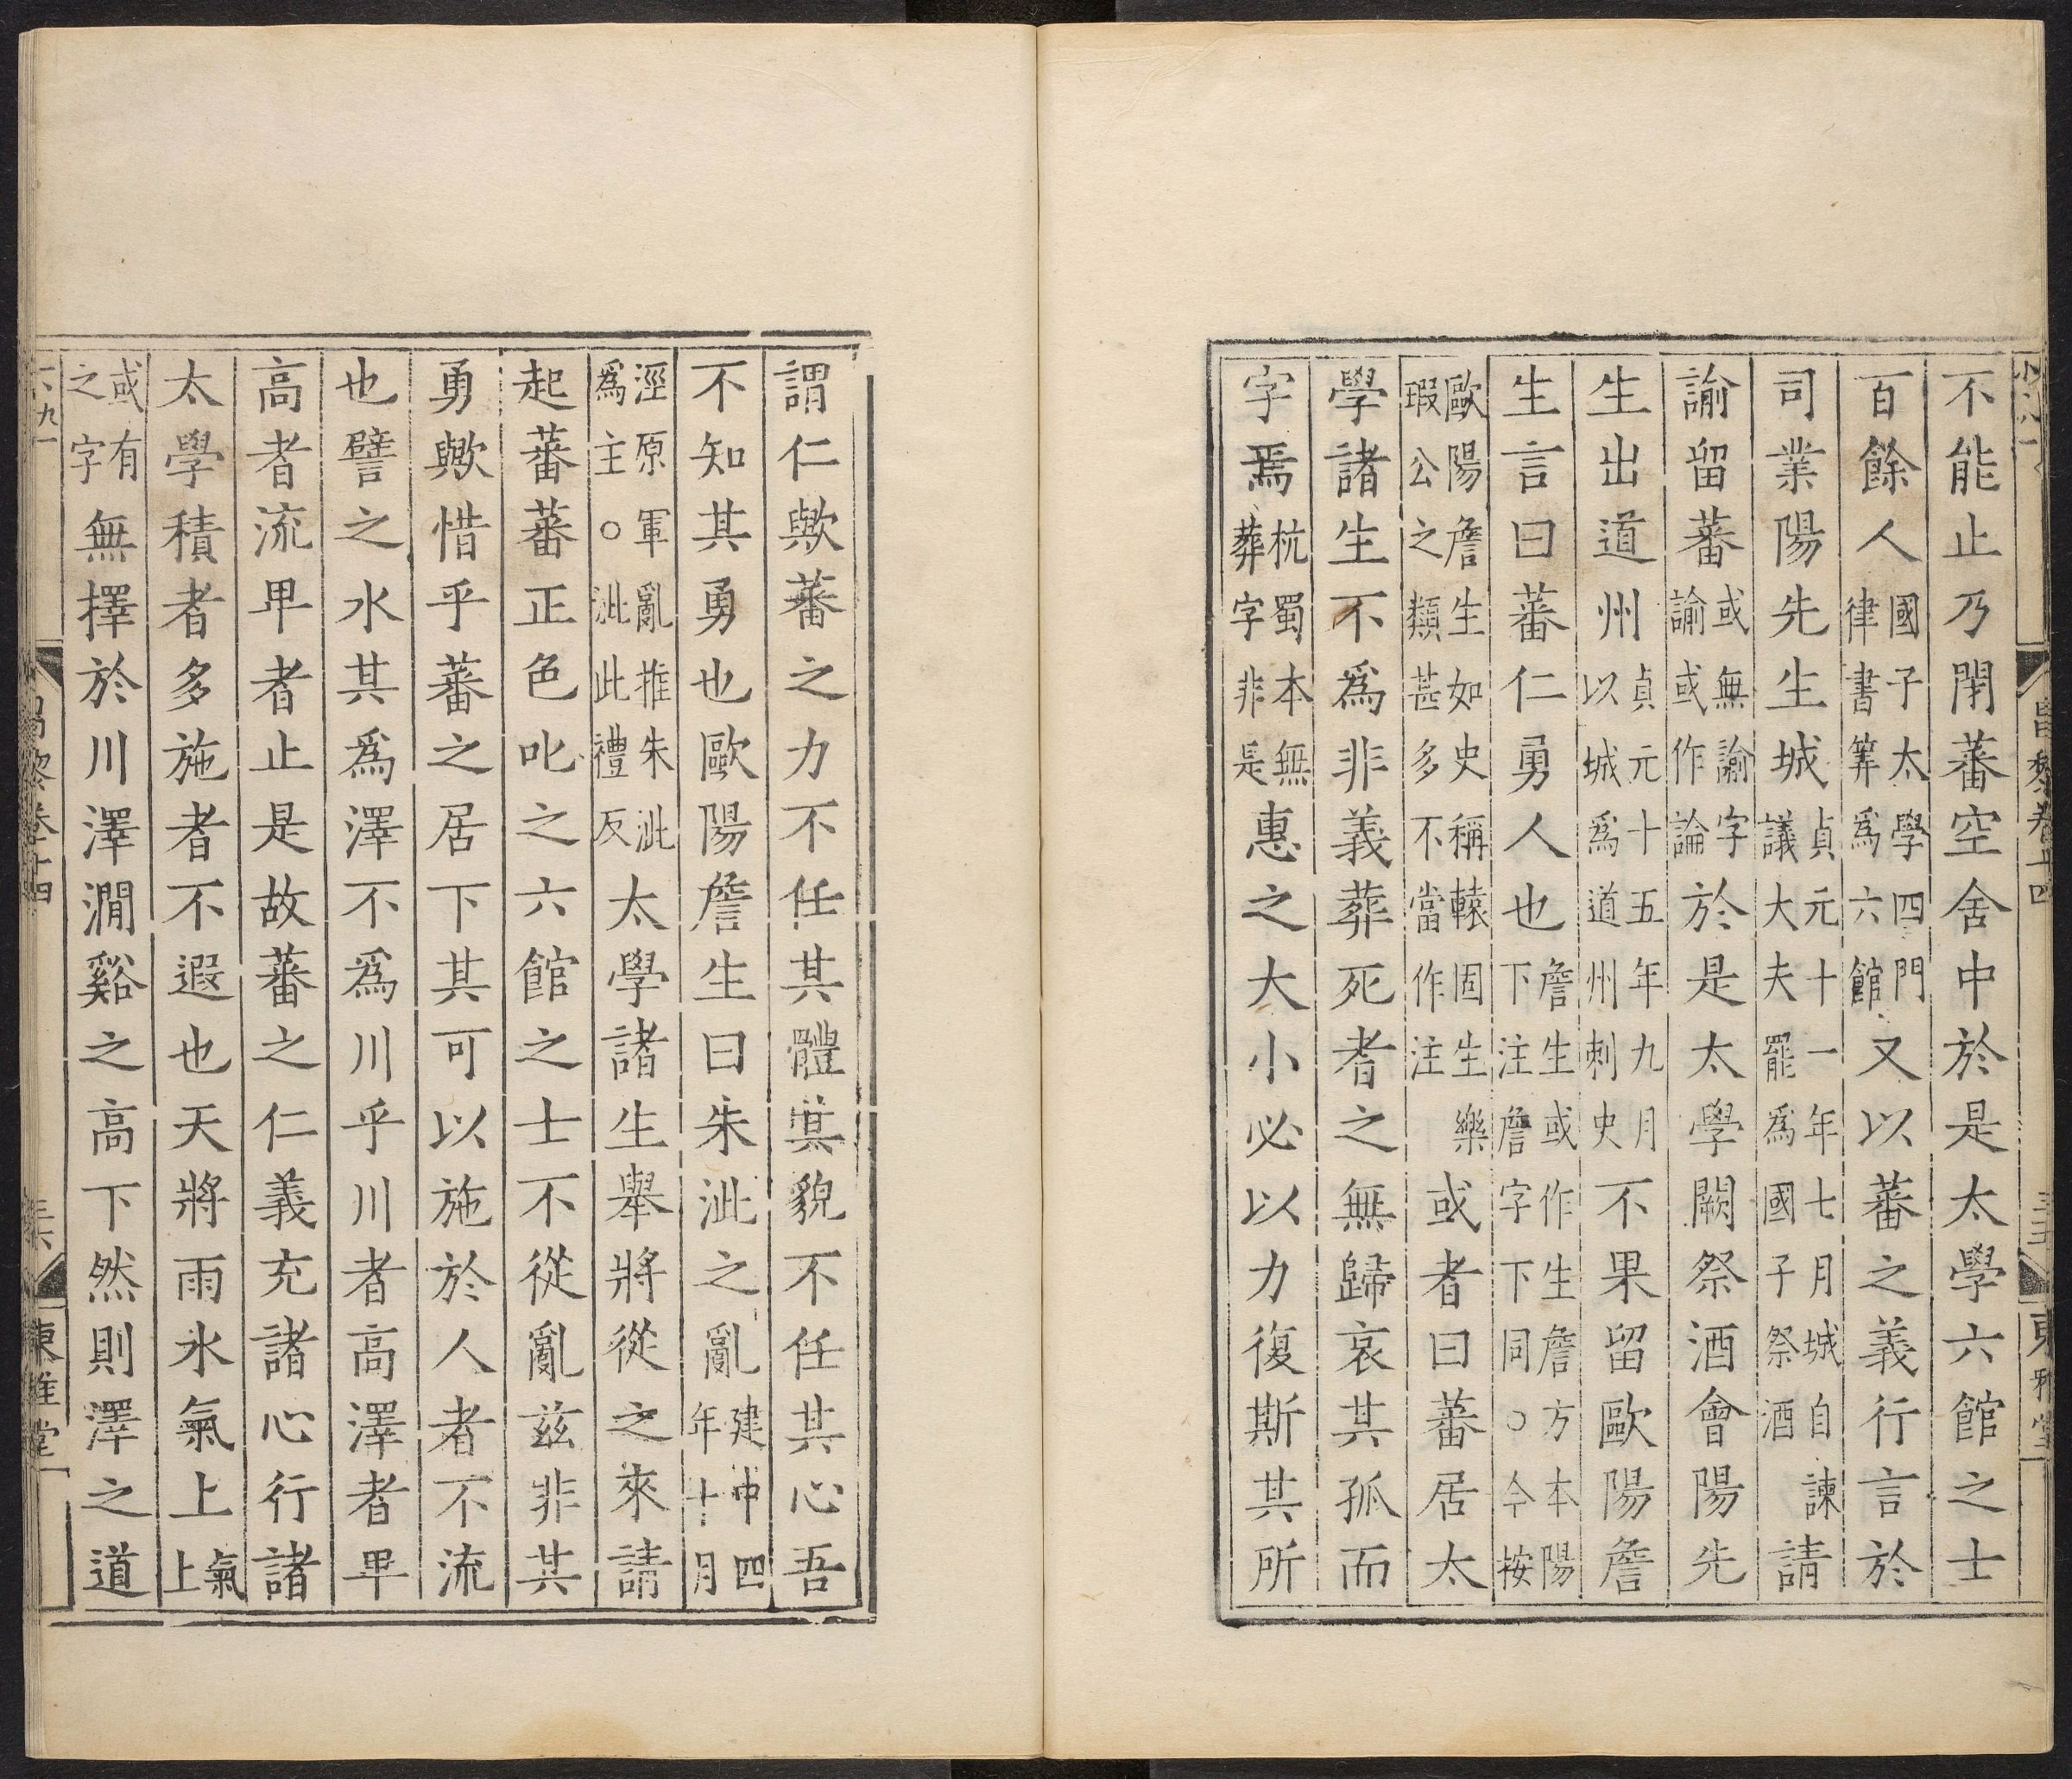 不能止乃閉蕃空舍中於是太學六館之士
百餘人國子太學四門律書筭爲六館又以蕃之義行言於
司業陽先生城貞元十一年七月城自諫議大夫罷爲國子祭酒請
諭留蕃或無諭字諭或作論於是太學闕祭酒會陽先
生出道州貞元十五年九月以城爲道州刺史不果留歐陽詹
生言曰蕃仁勇人也詹生或作生詹方本陽下注詹字下同○今按
歐陽詹生如史稱轅固生樂瑕公之類甚多不當作注或者曰蕃居太
學諸生不爲非義葬死者之無歸哀其孤而
字焉杭蜀本無葬字非是惠之大小必以力復斯其所
謂仁歟蕃之力不任其體其貌不任其心吾
不知其勇也歐陽詹生曰朱泚之亂建中四年十月
涇原軍亂推朱泚爲主○泚此禮反太學諸生舉將從之來請
起蕃蕃正色叱之六館之士不從亂兹非其
勇歟惜乎蕃之居下其可以施於人者不流
也譬之水其爲澤不爲川乎川者高澤者卑
高者流卑者止是故蕃之仁義充諸心行諸
太學積者多施者不遐也天將雨水氣上氣上
或有之字無擇於川澤澗谿之高下然則澤之道
昌黎卷十四
東雅堂